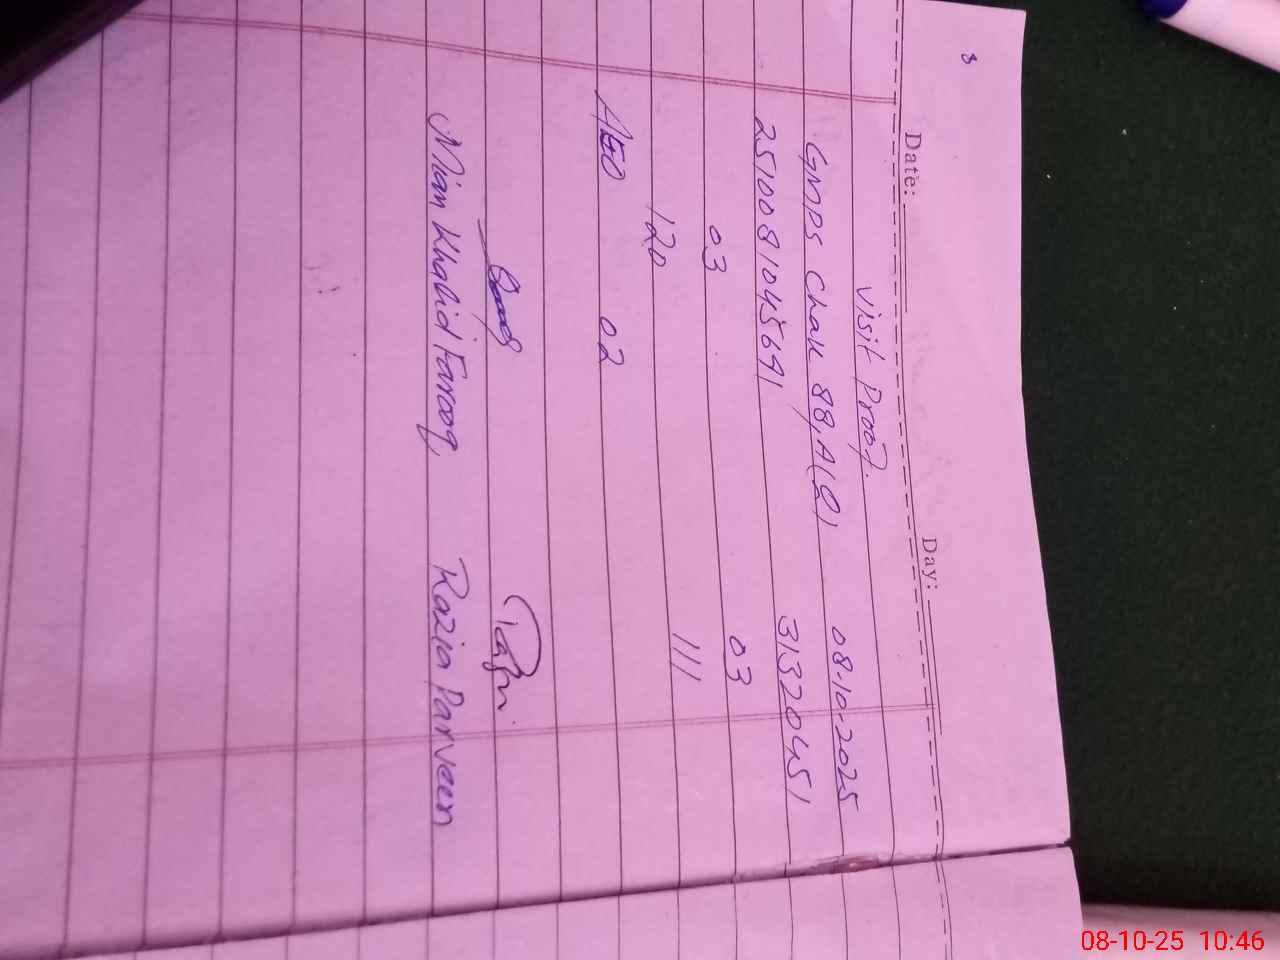 8
Date: Day:
Visit Proof.
GMPS Chak 88,A(Q) 08-10-2025
2510081045691 31320451
03 03
120 111
AEO 02
Mian Khalid Farooq, Razia Parveen
08-10-25 10:46